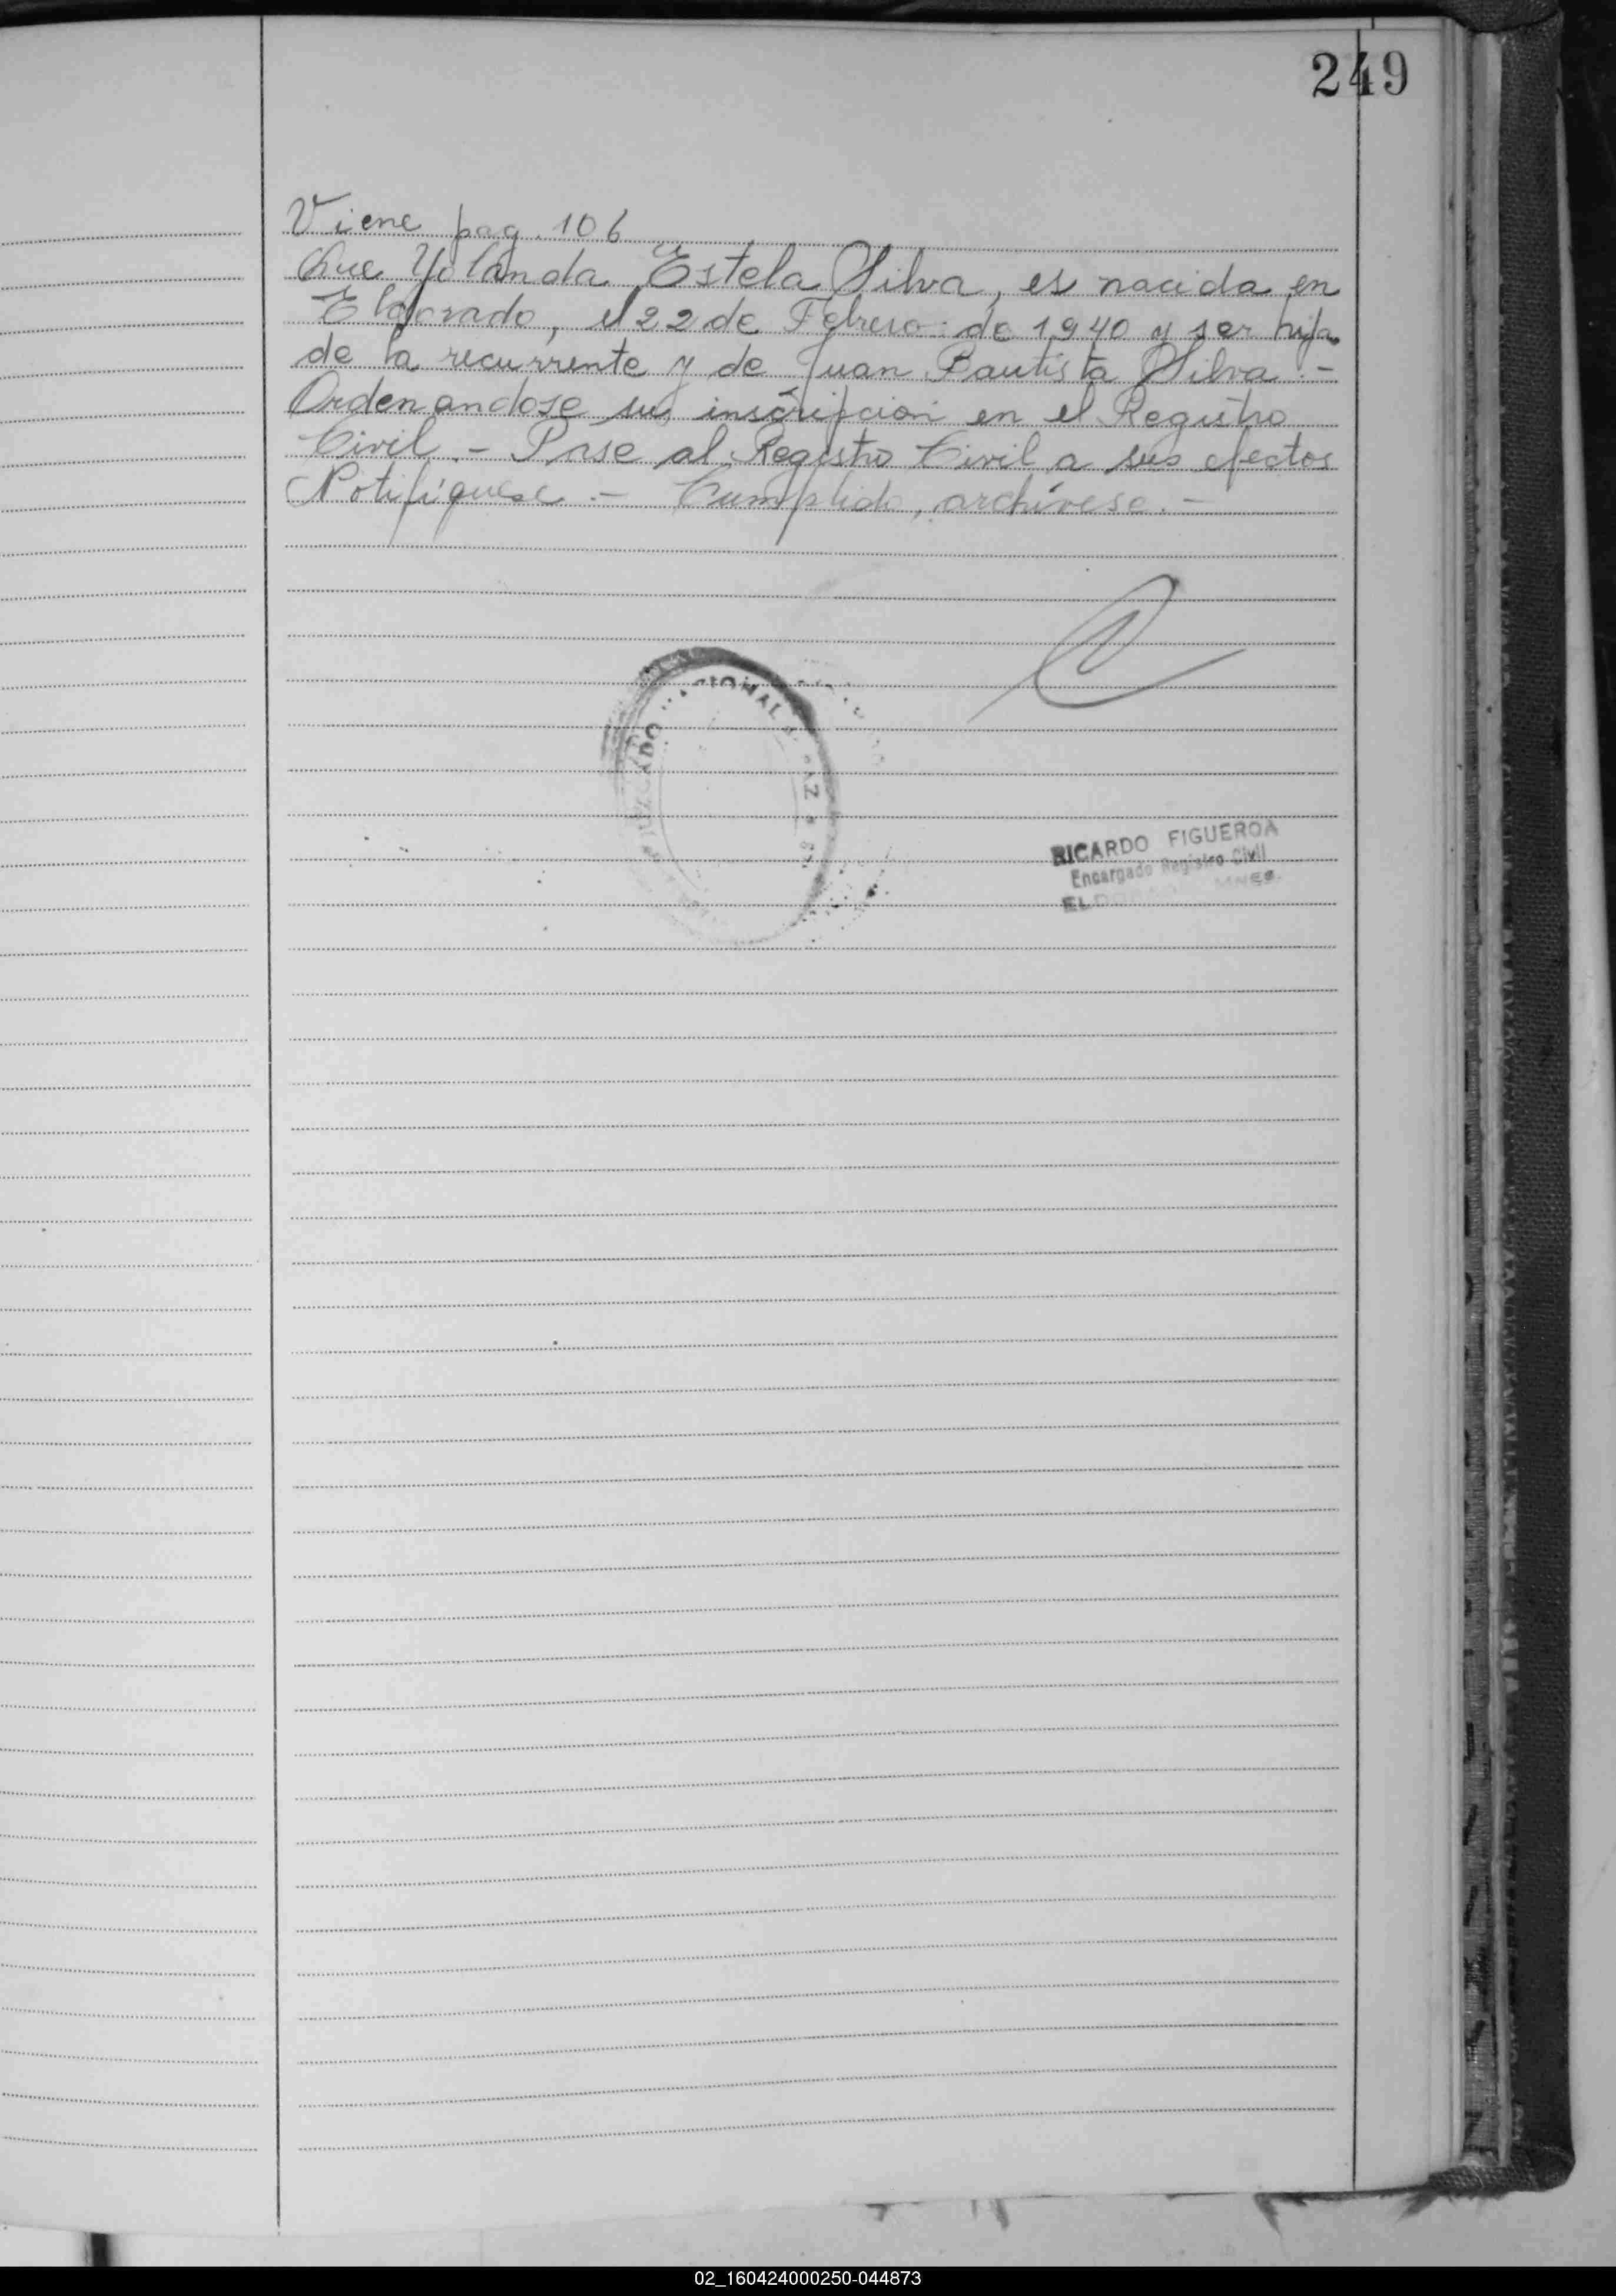 249
Viene pag. 106
Que Yolanda Estela Silva, es nacida en
Eldorado, el 22 de Febrero de 1940 y ser hija
de la recurrente y de Juan Bautista Silva.-
Ordenandose su inscripcion en el Registro
Civil.- Pase al Registro Civil a sus efectos
Notifíquese.- Cumplido, archívese.-
JUZGADO NACIONAL PAZ
RICARDO FIGUEROA
Encargado Registro Civil
ELDORADO MNES.
02_160424000250-044873